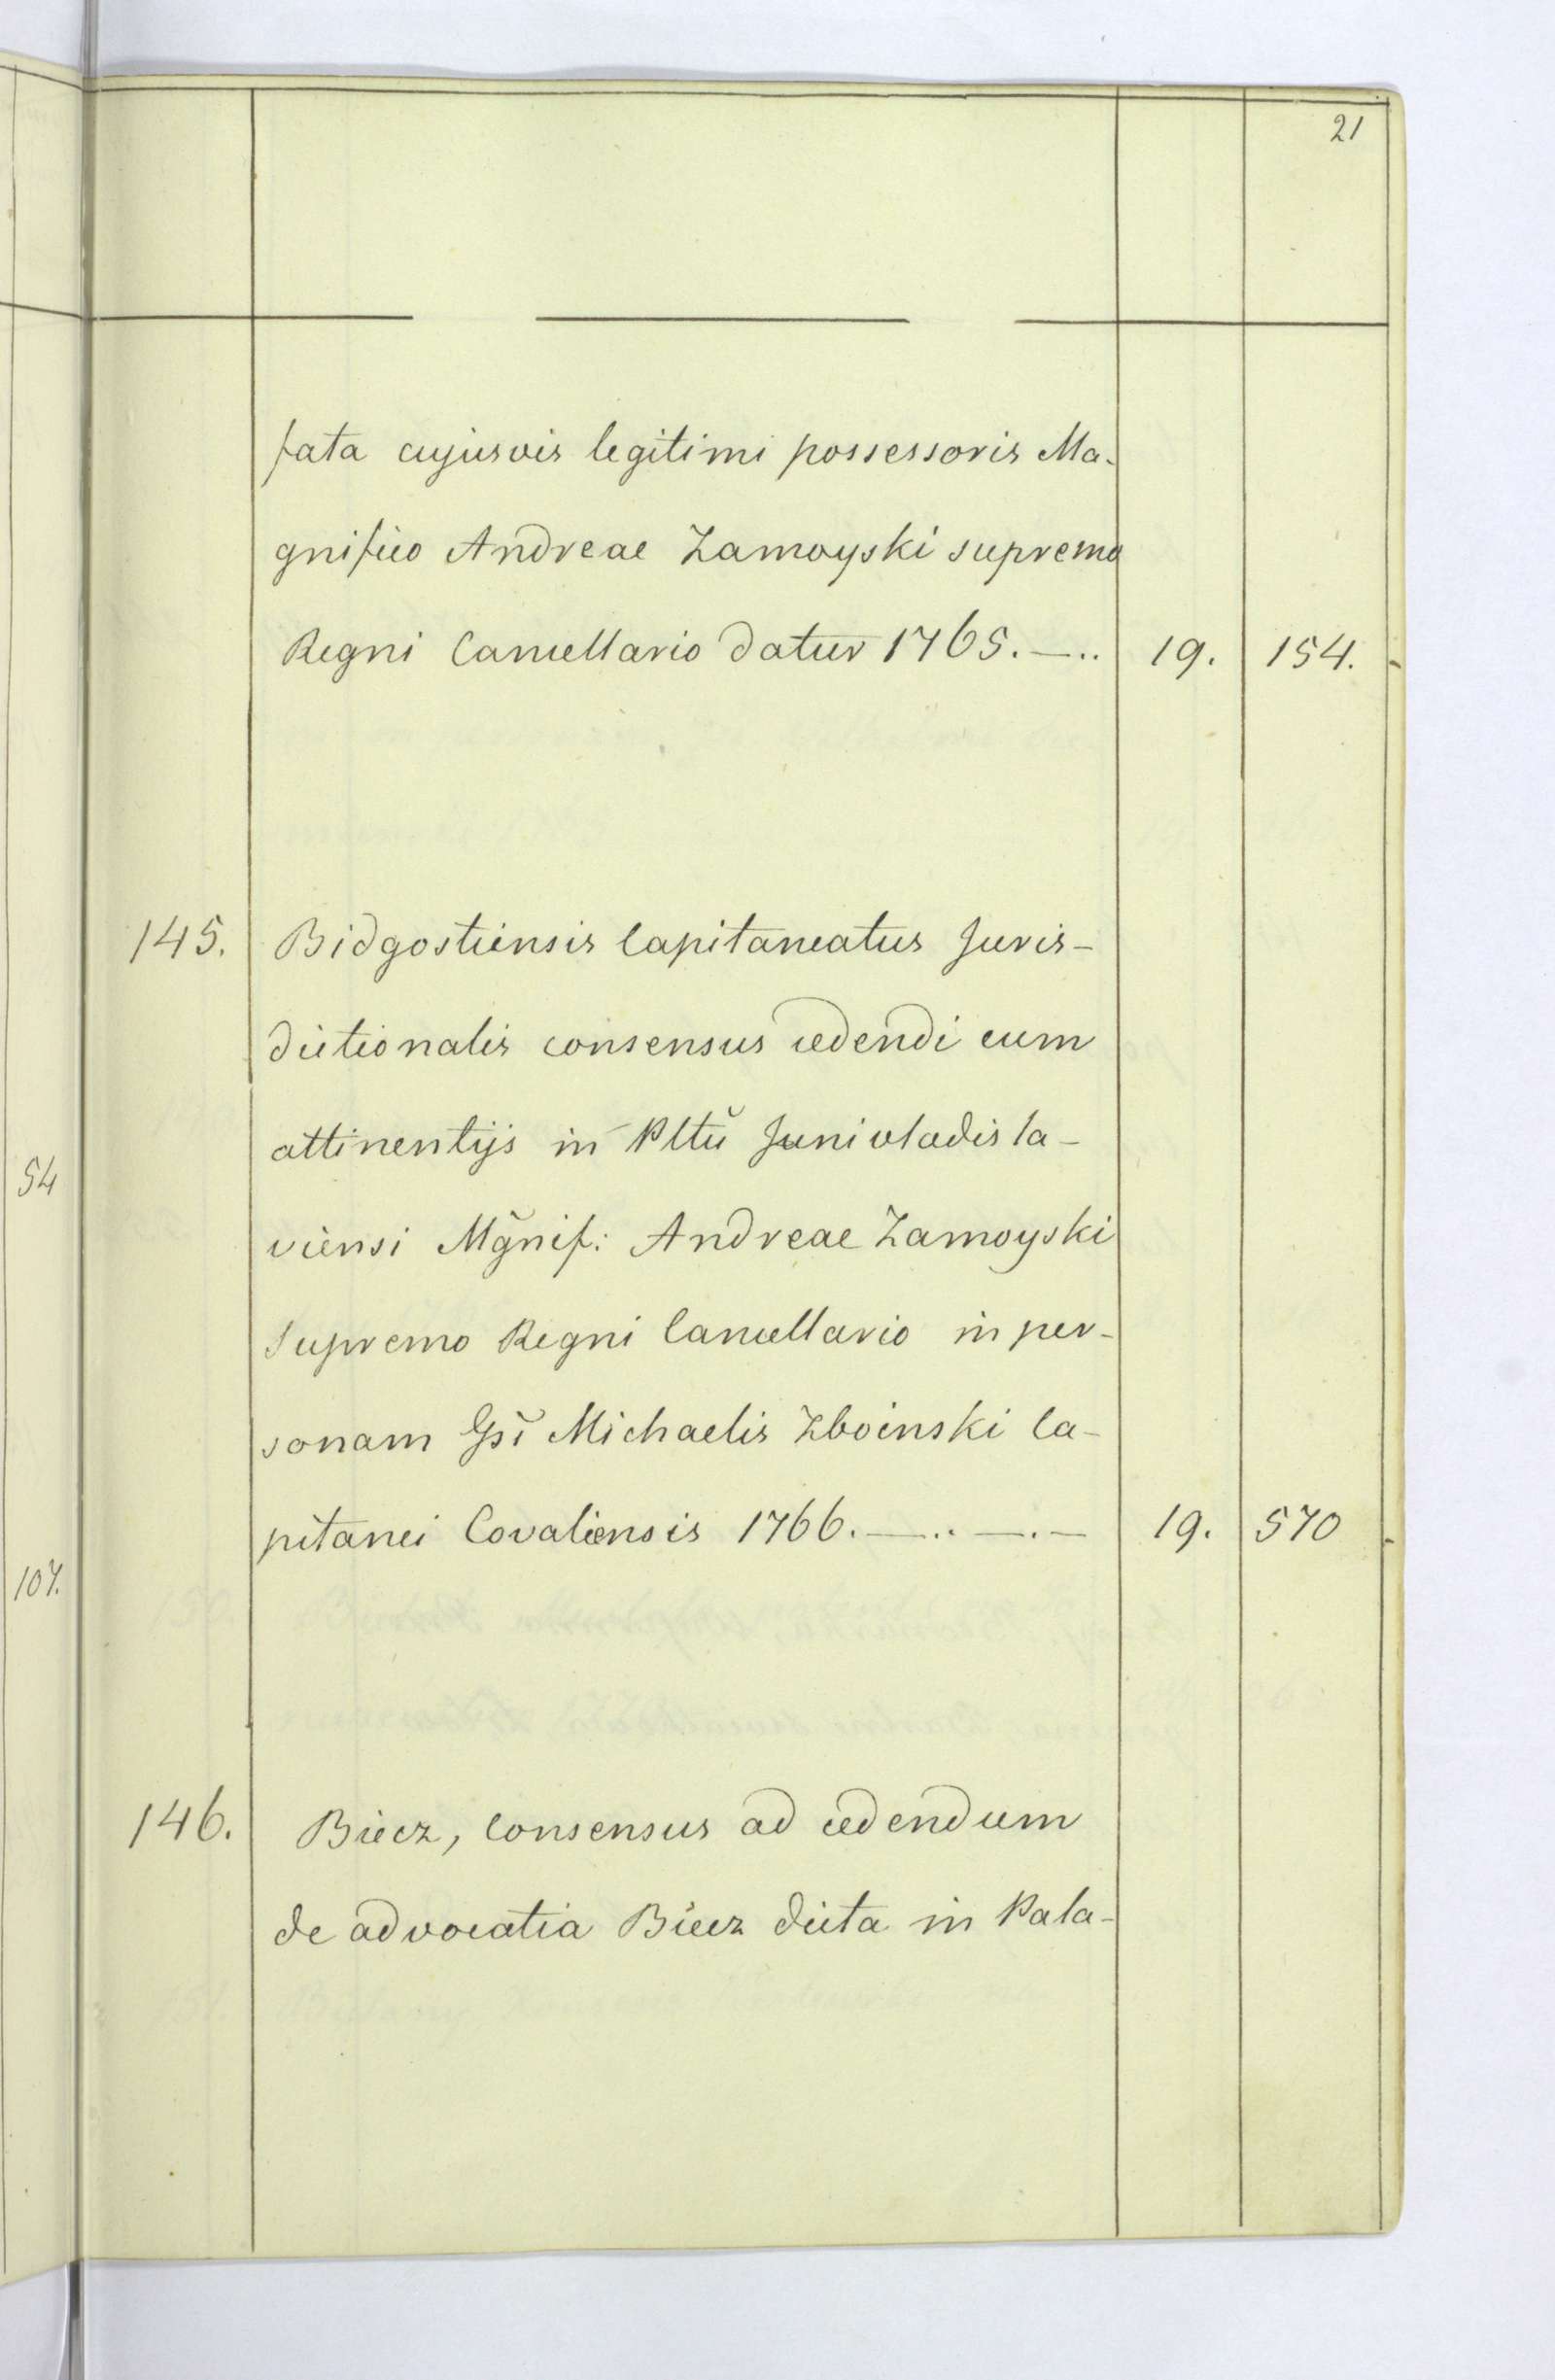 21
fata cujusvis legitimi possessoris Ma-
gnifico Andreae Zamoyski supremo
Regni Cancellario datur 1765. —.. 19. 154.
145. Bidgostiensis Capitaneatus Juris-
dictionalis consensus cedendi cum
attinentijs in Pltŭ Junivladisla-
viensi Mg̃nif: Andreae Zamoyski
Supremo Regni Cancellario in per-
sonam Gsĭ Michaelis Zboinski Ca-
pitanei Covaliensis 1766. —.. —. — 19. 570
146. Biecz, Consensus ad cedendum
de advocatia Biecz dicta in Pala-
54
107.